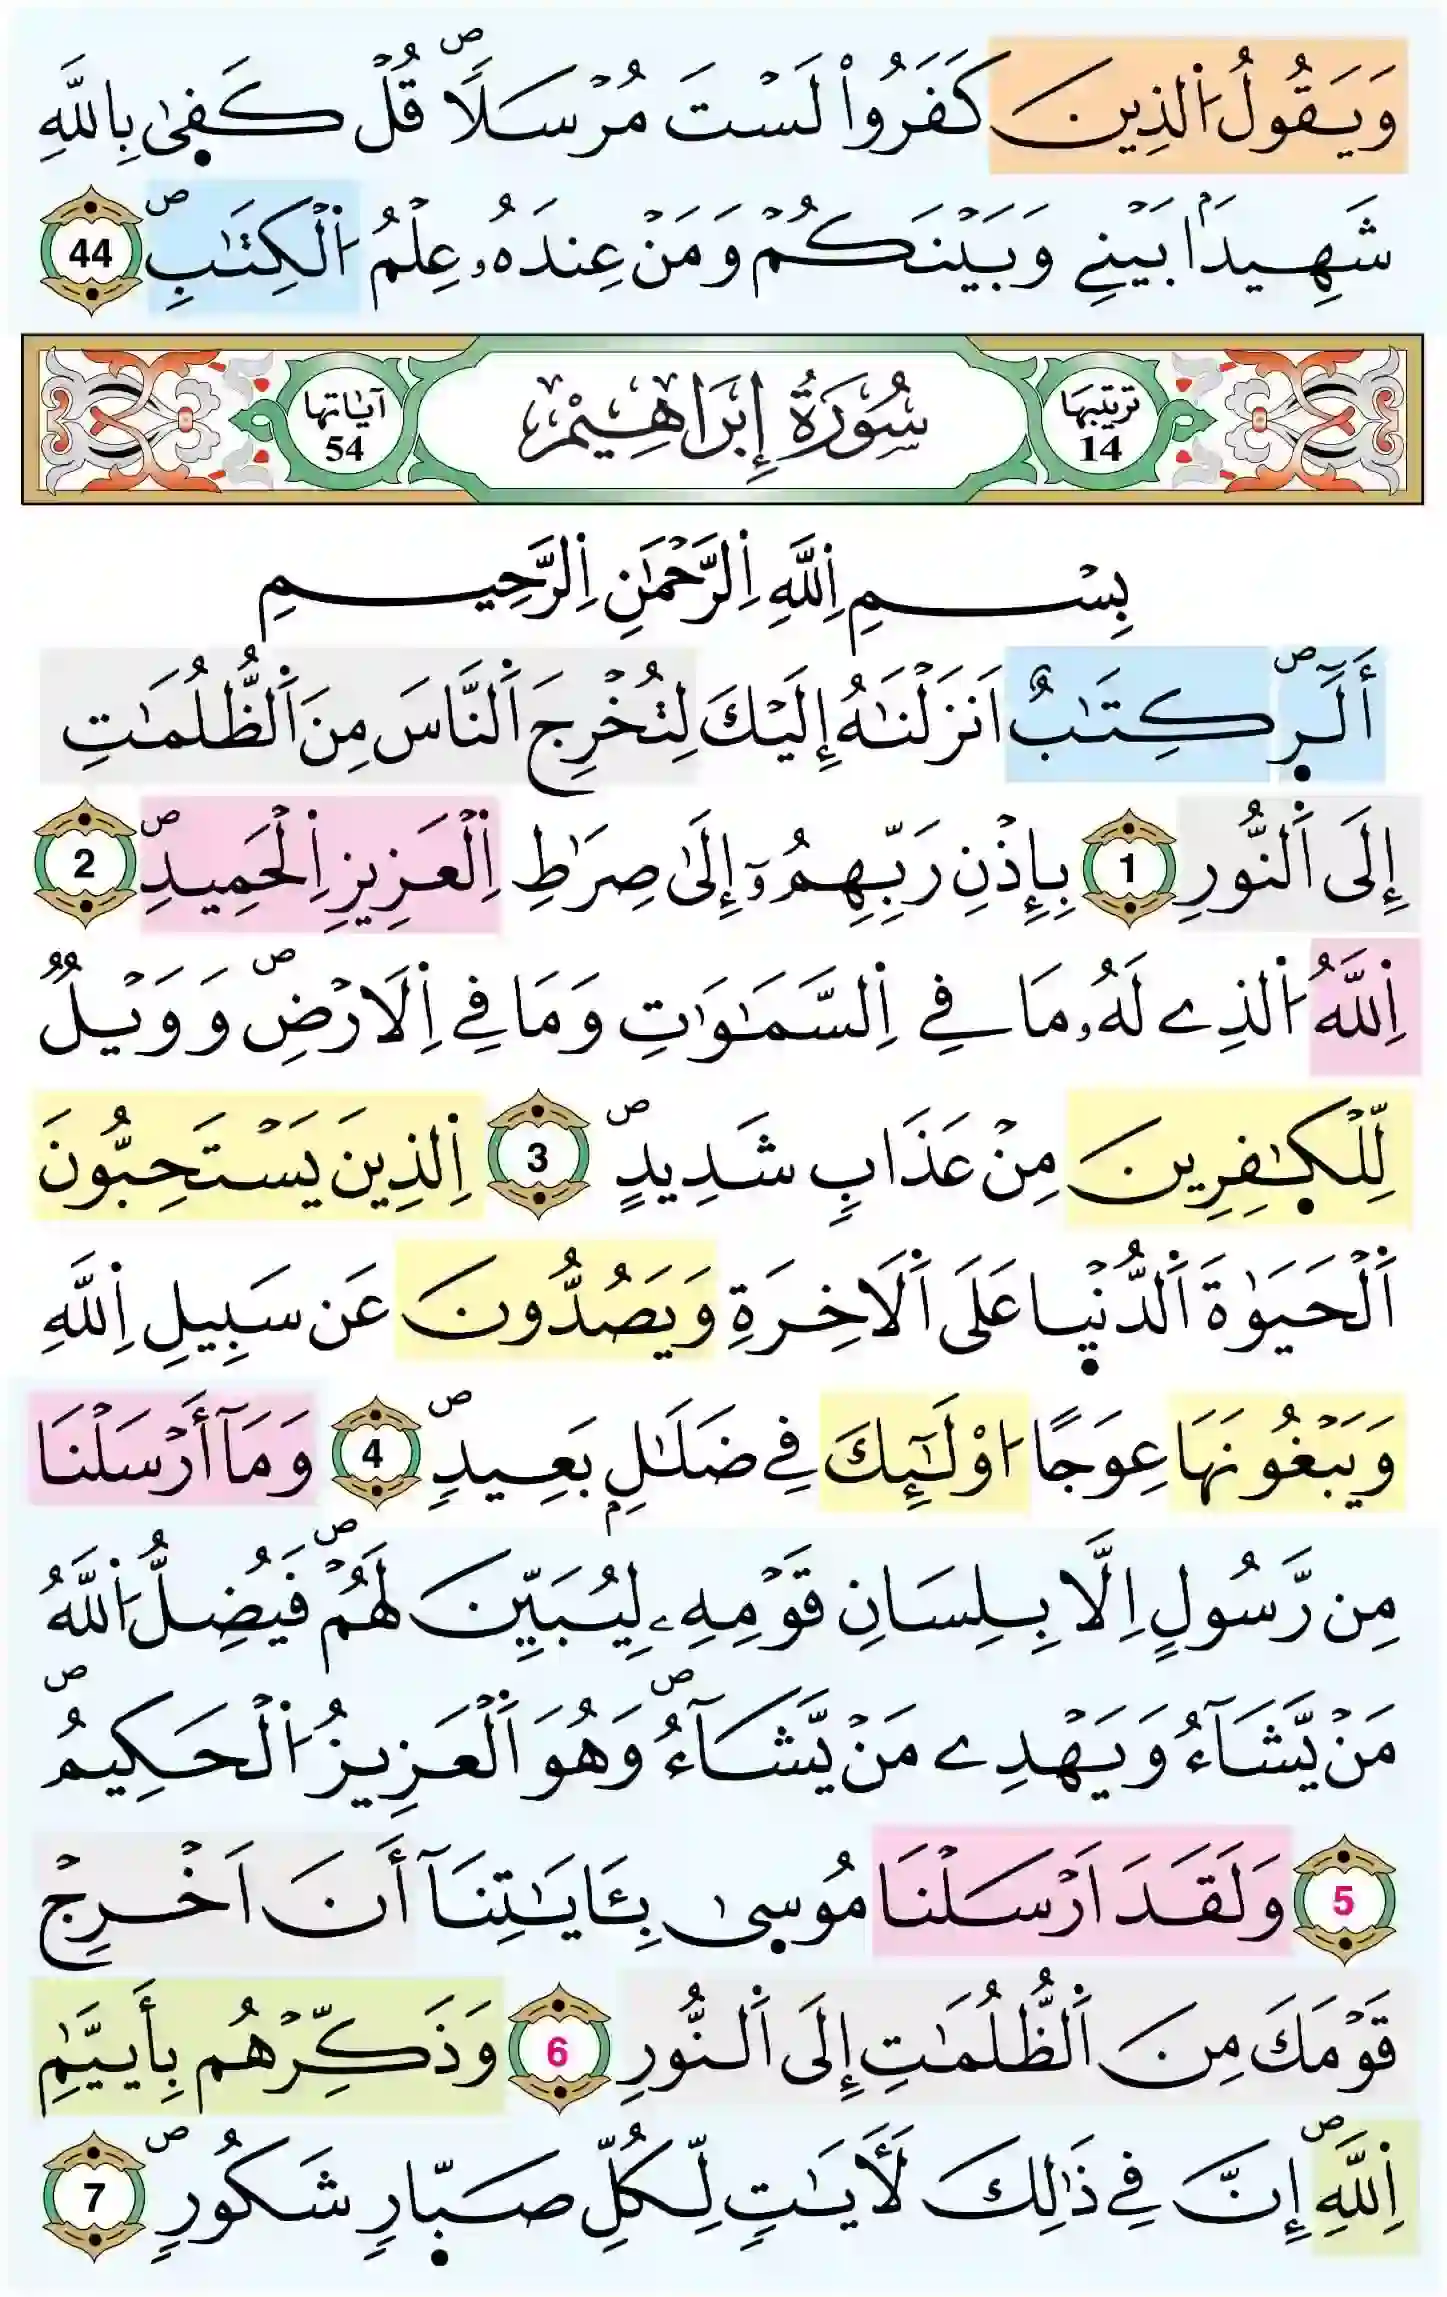 وَيَقُولُ اَ۬لذِينَ كَفَرُواْ لَسْتَ مُرْسَلاٗۖ قُلْ كَف۪ىٰ بِاللَّهِ
شَهِيدَۢا بَيْنِے وَبَيْنَكُمْ وَمَنْ عِندَهُۥ عِلْمُ اُ۬لْكِتَٰبِۖ 44
ترتيبها 14 سُورَةُ إِبْرَاهِيمَ آيَاتها 54
بِسْمِ اِ۬للَّهِ اِ۬لرَّحْمَٰنِ اِ۬لرَّحِيمِ
أَلَٓر۪ۖ كِتَٰبٌ اَنزَلْنَٰهُ إِلَيْكَ لِتُخْرِجَ اَ۬لنَّاسَ مِنَ اَ۬لظُّلُمَٰتِ
إِلَى اَ۬لنُّورِ 1 بِإِذْنِ رَبِّهِمُۥٓ إِلَىٰ صِرَٰطِ اِ۬لْعَزِيزِ اِ۬لْحَمِيدِۖ 2
اِ۬للَّهُ اُ۬لذِے لَهُۥ مَا فِے اِ۬لسَّمَٰوَٰتِ وَمَا فِے اِ۬لَارْضِۖ وَوَيْلٞ
لِّلْكٜ۪فِرِينَ مِنْ عَذَابٖ شَدِيدٍۖ 3 اِ۬لذِينَ يَسْتَحِبُّونَ
اَ۬لْحَيَوٰةَ اَ۬لدُّنْي۪ا عَلَى اَ۬لَاخِرَةِ وَيَصُدُّونَ عَن سَبِيلِ اِ۬للَّهِ
وَيَبْغُونَهَا عِوَجًا اُوْلَٰٓئِكَ فِے ضَلَٰلِۢ بَعِيدٖۖ 4 وَمَآ أَرْسَلْنَا
مِن رَّسُولٍ اِلَّا بِلِسَانِ قَوْمِهِۦ لِيُبَيِّنَ لَهُمْۖ فَيُضِلُّ اُ۬للَّهُ
مَنْ يَّشَآءُ وَيَهْدِے مَنْ يَّشَآءُۖ وَهُوَ اَ۬لْعَزِيزُ اُ۬لْحَكِيمُۖ
5 وَلَقَدَ اَرْسَلْنَا مُوس۪ىٰ بِـَٔايَٰتِنَآ أَنَ اَخْرِجْ
قَوْمَكَ مِنَ اَ۬لظُّلُمَٰتِ إِلَى اَ۬لنُّورِ 6 وَذَكِّرْهُم بِأَيَّيٰمِ
اِ۬للَّهِۖ إِنَّ فِے ذَٰلِكَ لَأٓيَٰتٖ لِّكُلِّ صَبّ۪ارٖ شَكُورٖۖ 7